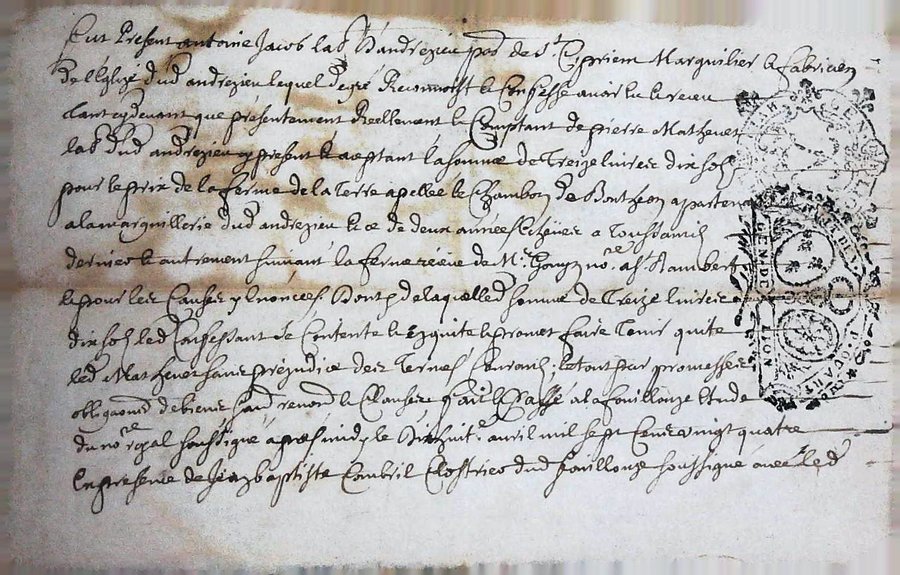 Fut Present antoine Jacob lab d'andrezieu pss de St Cipriem Marguilier & fabricien
de l'Eglize dud andrezieu lequel de gré Reconnoist & Confesse avoir eu & receu
tant cy devant que présentement Reellement & Comptant de pierre Mathevet
lab dud andrezieu cy present & acceptant la somme de Treize livres dix sols
pour le prix de la ferme de la Terre apellée le Chambon de Bontheon apartenant
a la marguillerie dud andrezieu & ce de deux années Echeües a Toussainctz
dernier & autrement suivant la ferme receüe de Me Gonyn nore a St Rambert
& pour les Causes y Enoncés Dont de laquelle d somme de Treize livres
dix sols led Confessant se Contente & quitte & promet faire Tenir quitte
led Mathevet sans préjudice des Termes Courants, le tout par promesses
obligaons de biens sand renond & Clauses faict & Passé a la fouillouze Etude
du nore royal soussigné apres midy le Dix huit avril mil sept Cens vingt quatre
En presence de Jean baptiste Combril Clostrier dud fouillouze soussigné avec led